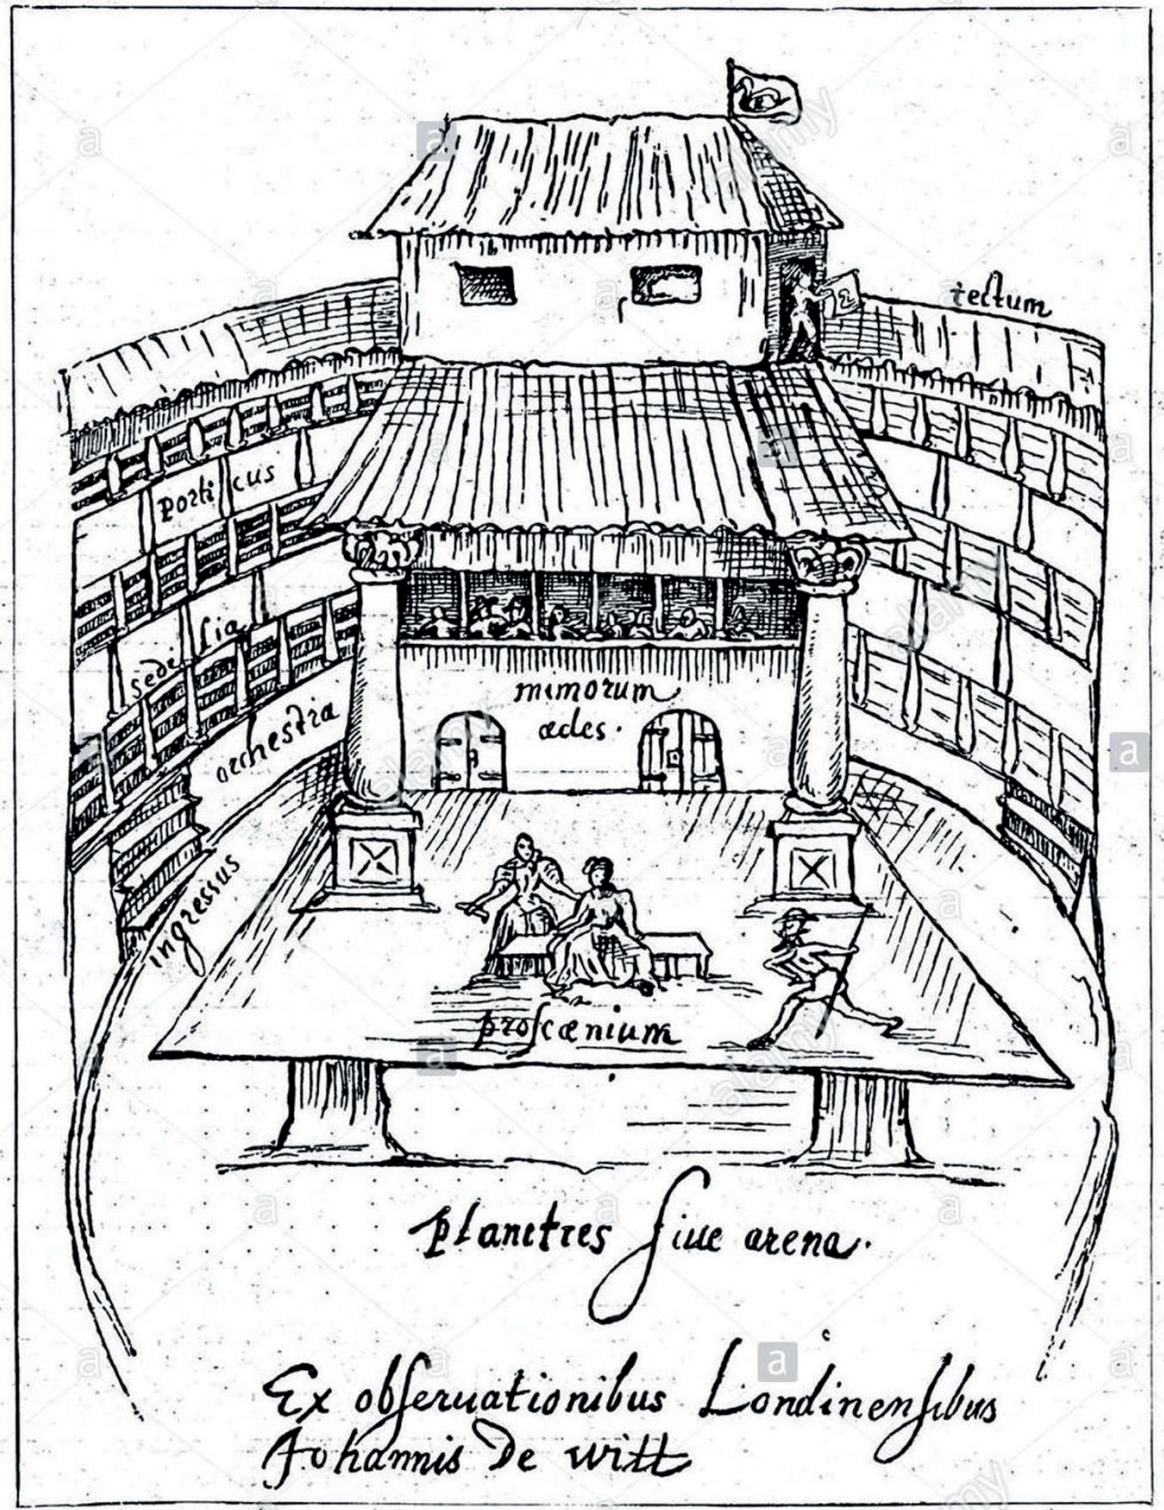 tectum
porticus
sedelia
orchestra
mimorum
ædes.
ingressus
proſcænium
planetres ſiue arena.
Ex obſeruationibus Londinenſibus
Johannis De witt
alamy
a